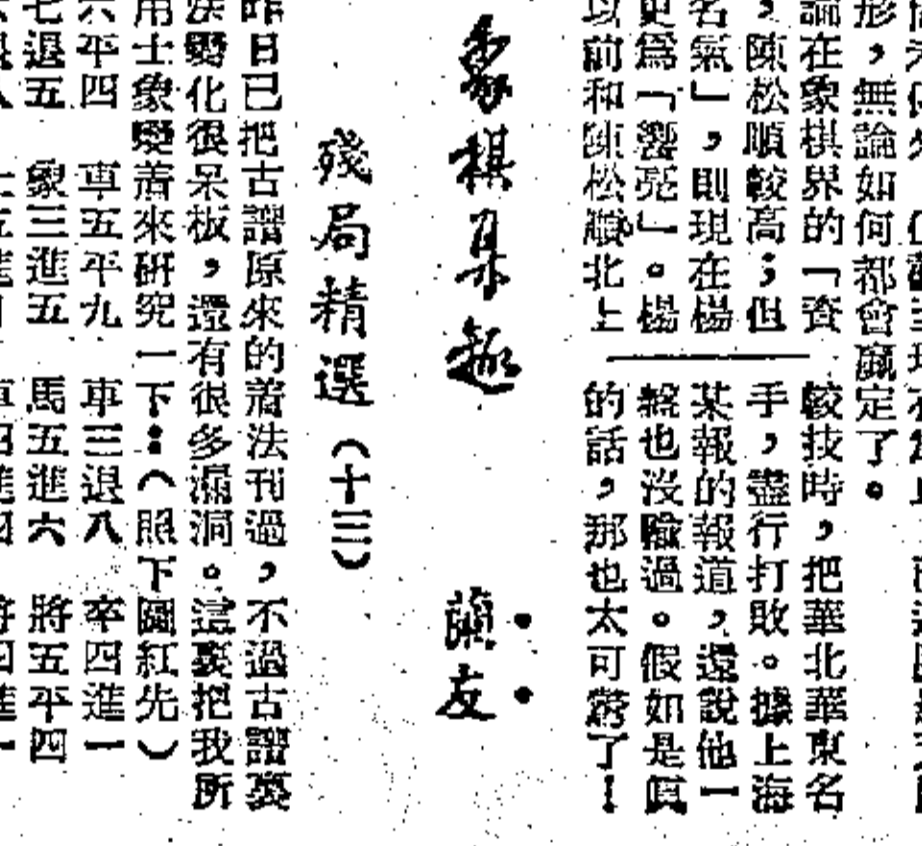 形，無論如何都會贏定了。
論在象棋界的「資
，陳松順較高；但
名氣」，則現在楊
更爲「響亮」。楊
以前和陳松順北上
較技時，把華北華東名
手，盡行打敗。據上海
某報的報道，還說他一
盤也沒輸過。假如是眞
的話，那也太可驚了！
象棋集趣
蘭友
殘局精選（十三）
昨日已把古譜原來的着法刊過，不過古譜裏
變化很呆板，還有很多漏洞。這裏把我所
用士象變着來研究一下：（照下圖紅先）
六平四　車五平九　車三退八　卒四進一
七退五　象三進五　馬五進六　將五平四